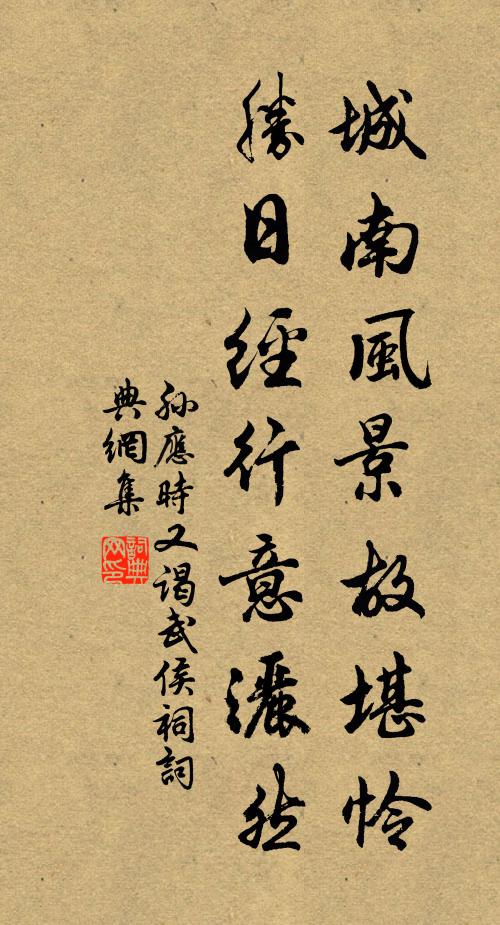 城南風景故堪怜
勝日經行意灑然
孫應時又謁武侯祠詞
典網集
詞典
网印